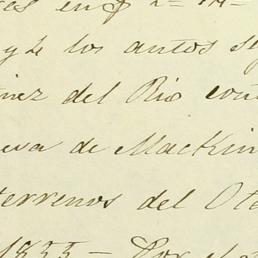 en
y de los autos se
nez del Rio con
esa de MacKin
terrenos del Ota
1835 - Por el